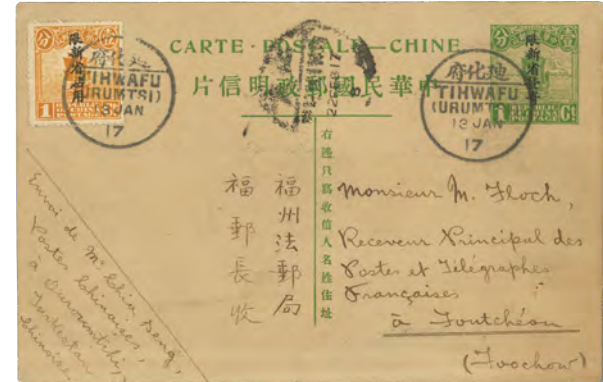 CARTE·POSTALE—CHINE
片信明政郵國民華中
分 壹
限新省貼用
1
迪化府
TIHWAFU
(URUMTSI)
13 JAN
17
22 FEB 17
分 壹
1 Ct
迪化府
TIHWAFU
(URUMTSI)
13 JAN
17
右邊只寫收信人名姓住址
福州法郵局
福郵長收
Monsieur M. Floch,
Receveur Principal des
Postes et Télégraphes
Françaises
à Foutchéou
(Foochow)
Envoi de Mr Chia Seng,
Postes Chinoises,
à Ouroumtchi,
Turkestan
Chinoise